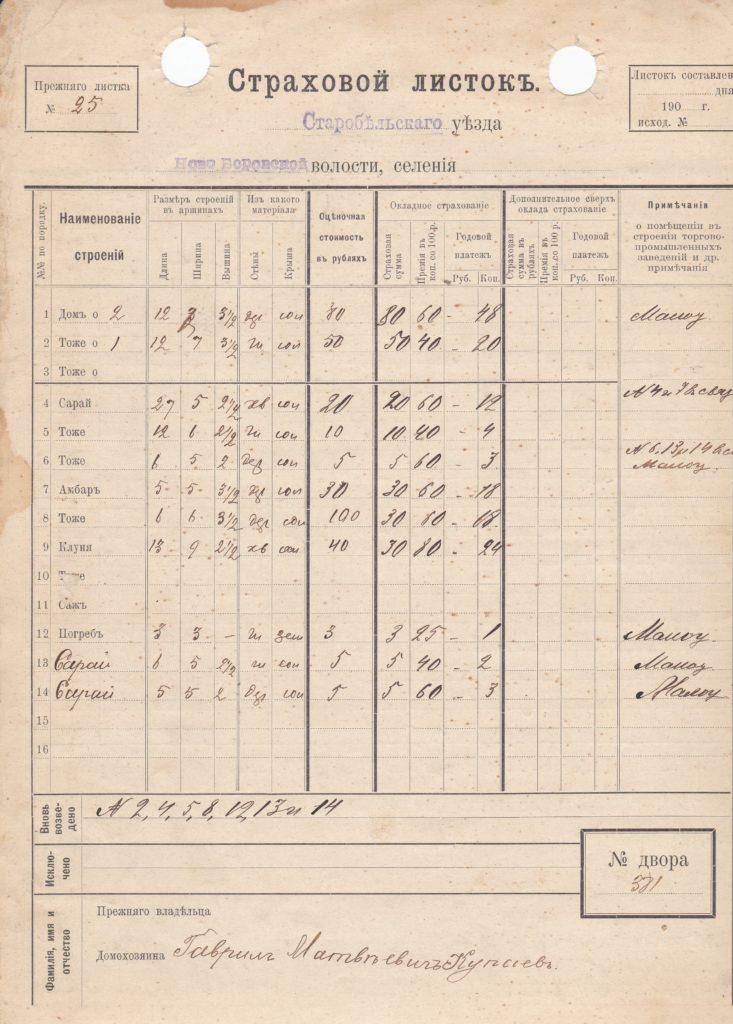 Прежняго листка
№ 25
Страховой листокъ.
Листокъ составлен
дня
190 г.
исход. №
Старобѣльскаго уѣзда
Ново Боровской волости, селенія
№№ по порядку.
Наименованіе строеній
Размѣръ строеній въ аршинахъ
Длина
Ширина
Вышина
Изъ какого матеріала
Стѣны
Крыша
Оцѣночная стоимость въ рубляхъ
Окладное страхованіе
Страховая сумма
Премія въ коп. со 100 р.
Годовой платежъ
Руб.
Коп.
Дополнительное сверхъ оклада страхованіе
Страховая сумма въ рубляхъ
Премія въ коп. со 100 р.
Годовой платежъ
Руб.
Коп.
Примѣчанія
о помѣщеніи въ строеніи торгово-промышленныхъ заведеній и др. примѣчанія
1 Домъ о 2 12 3½ дер сол 80 80 60 - 48
2 Тоже о 1 12 7 3½ гл сол 50 50 40 - 20
3 Тоже о
4 Сарай 27 5 2½ хв сол 20 20 60 - 12
5 Тоже 12 6 2½ гл сол 10 10 40 - 4
6 Тоже 6 5 2 дер сол 5 5 60 - 3
7 Амбаръ 5 5 3½ дер сол 30 30 60 - 18
8 Тоже 6 6 3½ дер сол 100 30 60 - 18
9 Клуня 13 9 2½ хв сол 40 30 80 - 24
10 Тоже
11 Сажъ
12 Погребъ 3 3 - гл зем 3 3 25 - 1
13 Сарай 6 5 2½ гл сол 5 5 40 - 2
14 Сарай 5 5 2 дер сол 5 5 60 - 3
15
16
Вновь возведено
N 2, 4, 5, 8, 12, 13 и 14
Исключено
№ двора
381
Фамилія, имя и отчество
Прежняго владѣльца
Домохозяина Гаврилъ Матвѣевичъ Купаевъ.